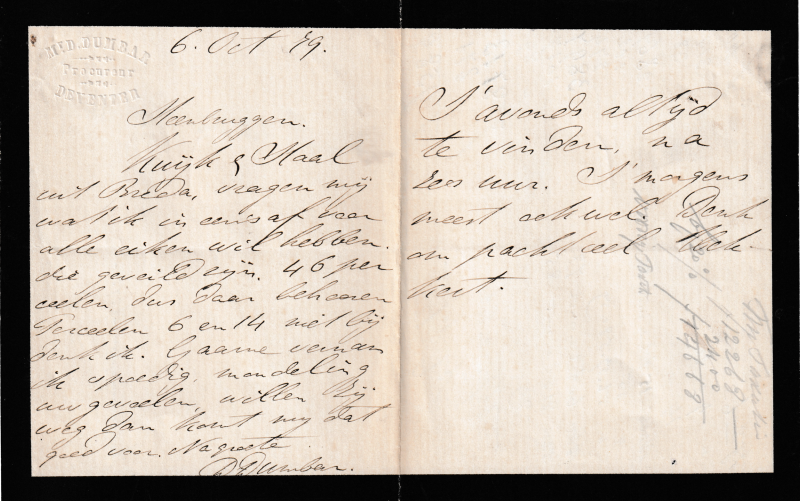 Mr D. DUMBAR
Procureur
DEVENTER
6. Oct 79.
Steenbruggen.
Kuijk & Staal
uit Breda, vragen mij
wat ik in eens af voor
alle eiken wil hebben.
die geveild zijn. 46 per
ceelen, dus daar behooren
Perceelen 6 en 14 niet bij
denk ik. Gaarne vernam
ik spoedig, mondeling
uw gevoelen, willen Zij
weg dan komt mij dat
goed voor. Na groete
DDumbar.
S'avonds altijd
te vinden, na
zes uur. S'morgens
meest ook wel. Denk
om pachtceel Wek-
kert.
12263
2400
14663